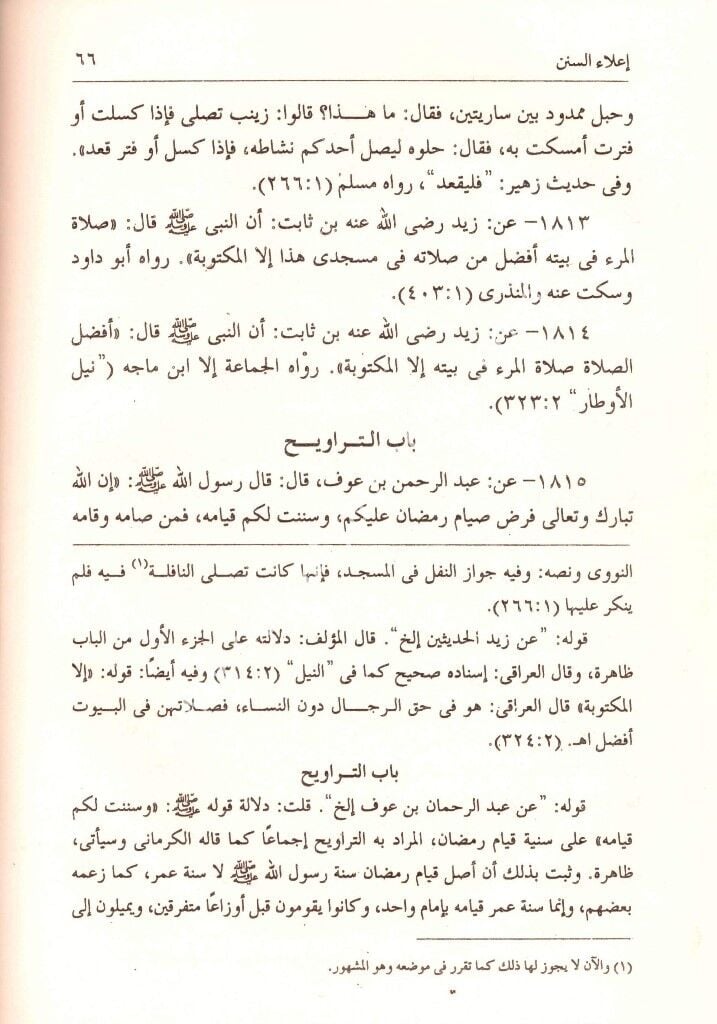 إعلاء السنن ٦٦
وحبل ممدود بين ساريتين، فقال: ما هـــذا؟ قالوا: زينب تصلى فإذا كسلت أو
فترت أمسكت به، فقال: حلوه ليصل أحدكم نشاطه، فإذا كسل أو فتر قعد».
وفى حديث زهير: ”فليقعد“، رواه مسلم (١:٢٦٦).
١٨١٣- عن: زيد رضى الله عنه بن ثابت: أن النبى ﷺ قال: «صلاة
المرء فى بيته أفضل من صلاته فى مسجدى هذا إلا المكتوبة». رواه أبو داود
وسكت عنه والمنذرى (١:٤٠٣).
١٨١٤- عن: زيد رضى الله عنه بن ثابت: أن النبى ﷺ قال: «أفضل
الصلاة صلاة المرء فى بيته إلا المكتوبة». رواه الجماعة إلا ابن ماجه (”نيل
الأوطار“ ٢:٣٢٣).
باب التـراويــح
١٨١٥- عن: عبد الرحمن بن عوف، قال: قال رسول الله ﷺ: «إن الله
تبارك وتعالى فرض صيام رمضان عليكم، وسننت لكم قيامه، فمن صامه وقامه
النووى ونصه: وفيه جواز النفل فى المسجد، فإنها كانت تصلى النافلة(١) فيه فلم
ينكر عليها (١:٢٦٦).
قوله: ”عن زيد الحديثين إلخ“. قال المؤلف: دلالته على الجزء الأول من الباب
ظاهرة، وقال العراقى: إسناده صحيح كما فى ”النيل“ (٢:٣١٤) وفيه أيضًا: قوله: «إلا
المكتوبة» قال العراقى: هو فى حق الرجال دون النساء، فصلاتهن فى البيوت
أفضل اهـ. (٢:٣٢٤).
باب التراويح
قوله: ”عن عبد الرحمان بن عوف إلخ“. قلت: دلالة قوله ﷺ: «وسننت لكم
قيامه» على سنية قيام رمضان، المراد به التراويح إجماعًا كما قاله الكرمانى وسيأتى،
ظاهرة. وثبت بذلك أن أصل قيام رمضان سنة رسول الله ﷺ لا سنة عمر، كما زعمه
بعضهم، وإنما سنة عمر قيامه بإمام واحد، وكانوا يقومون قبل أوزاعًا متفرقين، ويميلون إلى
(١) والآن لا يجوز لها ذلك كما تقرر فى موضعه وهو المشهور.